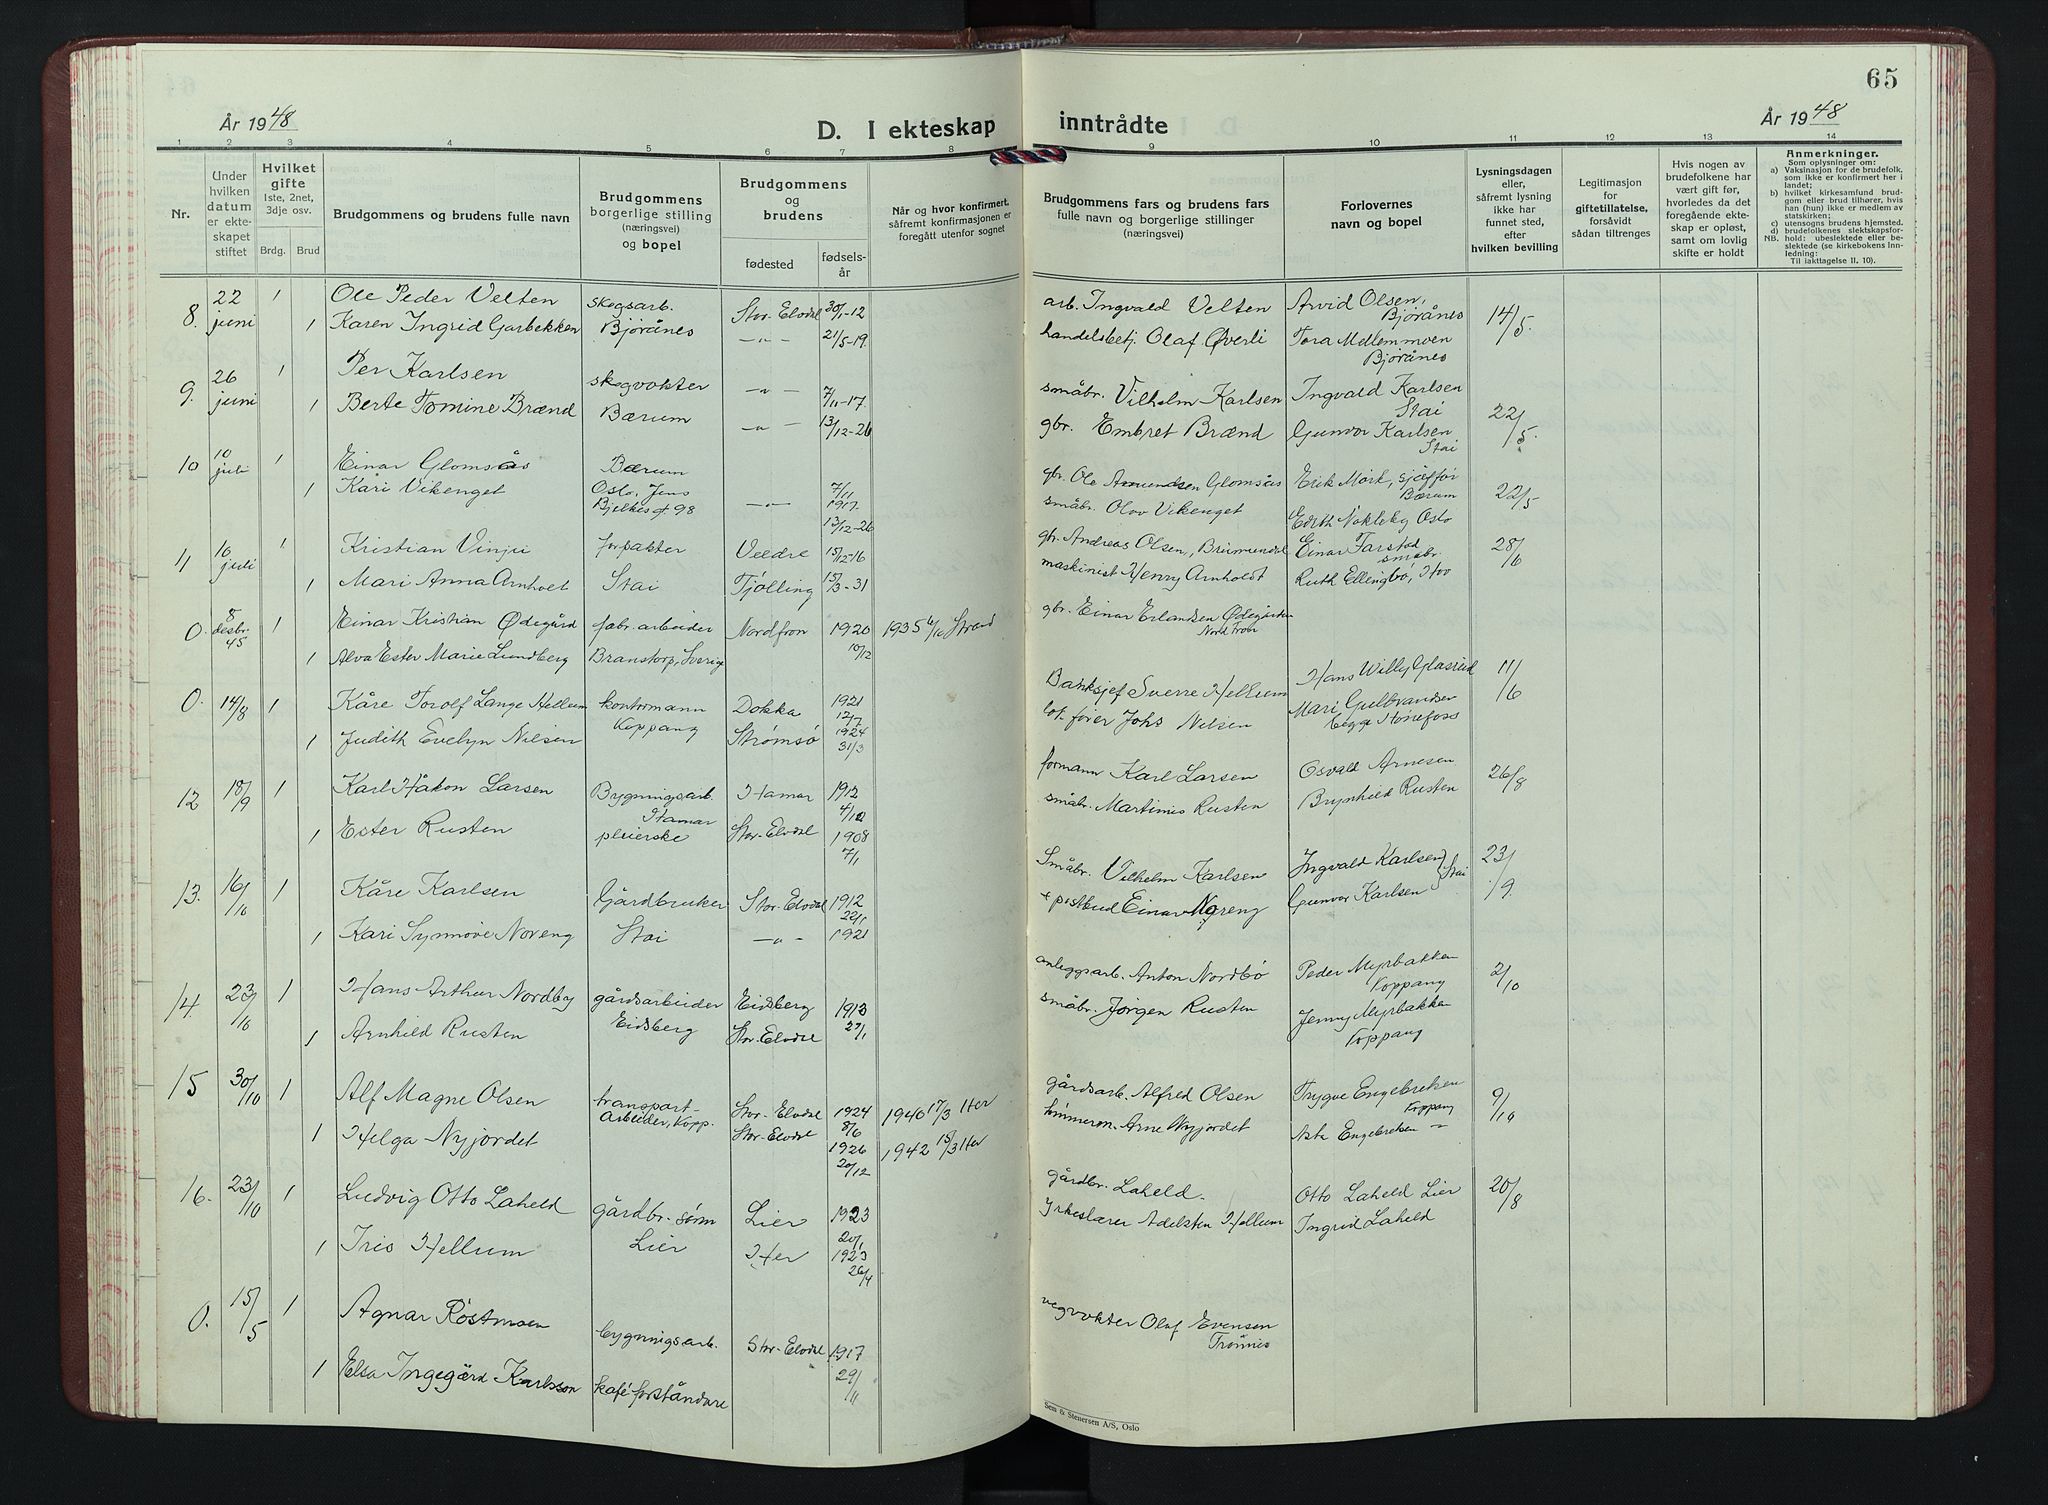 65
År 1948
D. I ekteskap inntrådte
År 1948
1 2 3 4 5 6 7 8 9 10 11 12 13 14
Nr.
Under hvilken datum er ekteskapet stiftet
Hvilket gifte
1ste, 2net, 3dje osv.
Brdg. Brud
Brudgommens og brudens fulle navn
Brudgommens borgerlige stilling (næringsvei) og bopel
Brudgommens og brudens
fødested
fødselsår
Når og hvor konfirmert, såfremt konfirmasjonen er foregått utenfor sognet
Brudgommens fars og brudens fars fulle navn og borgerlige stillinger (næringsvei)
Forlovernes navn og bopel
Lysningsdagen eller, såfremt lysning ikke har funnet sted, efter hvilken bevilling
Legitimasjon for giftetillatelse, forsåvidt sådan tiltrenges
Hvis nogen av brudefolkene har vært gift før, hvorledes da det foregående ekteskap er opløst, samt om lovlig skifte er holdt
Anmerkninger.
Som oplysninger om:
a) Vaksinasjon for de brudefolk, som ikke er konfirmert her i landet;
b) hvilket kirkesamfund brudgom eller brud tilhører, hvis han (hun) ikke er medlem av statskirken;
c) utensogns brudens hjemsted.
d) brudefolkenes slektskapsforhold: ubeslektede eller beslektede (se kirkebokens Innledning:
NB. Til iakttagelse II. 10).
8. 22 juni 1 Ole Peder Velten skogsarb. Stor-Elvdal 30/1-12 arb. Ingvald Velten Arvid Olsen, Bjørånes 14/5.
1 Karen Ingrid Garbekken Bjørånes -"- 21/5-19. handelsbetj. Olaf Øverli Tora Mellemmoen Bjørånes
9. 26 juni 1 Per Karlsen skogvokter -"- 7/11-17. småbr. Vilhelm Karlsen Ingvald Karlsen Stai 22/5.
1 Berte Tomine Brænd Bærum -"- 13/12-26 gbr. Embret Brænd Gunvor Karlsen Stai
10 10 juli 1 Einar Glomsås Bærum 7/11 1917. gbr. Ole Amundsen Glomsås Erik Mørk, sjåfør Bærum 22/5
1 Kari Vikenget Oslo, Jens Bjelkes gt 98 -"- 13/12-26 småbr. Olov Vikenget Edith Nokleby Oslo
11 10 juli 1 Kristian Vinju forpakter Veldre 15/12-16 gbr. Andreas Olsen, Brumundal Einar Farstad småbr. 28/6
1 Mari Anna Arnholt Stai Tjølling 15/3-31 maskinist Henry Arnholdt Ruth Ellingbø, Hov
0. 8 desbr. 45 1 Einar Kristian Ødegård fabr. arbeider Nordfron 1920 10/12 1935 6/10 Strand gbr. Einar Erlandsen Ødegården Nord Fron
1 Alva Ester Marie Lundberg Branstorp, Sverige
0. 14/8 1 Kåre Torolf Lange Hellum kontormann Dokka 1921 12/7 Banksjef Sverre Hellum Hans Willy Glasrud 11/6
1 Judith Evelyn Nilsen Koppang Strømsø 1924 31/3 lok. fører Johs Nilsen Mari Gulbrandsen begge Hønefoss
12 18/9 1 Karl Håkon Larsen Bygningsarb. Hamar Hamar 1912 4/12 formann Karl Larsen Osvald Arnesen 26/8
1 Ester Rusten pleierske Stor-Elvdal 1908 7/1 småbr. Martinus Rusten Brynhild Rusten
13. 16/10 1 Kåre Karlsen Gårdbruker Stor-Elvdal 1912 22/1 Småbr. Vilhelm Karlsen Ingvald Karlsen } Stai 23/9
1 Kari Synnøve Noreng Stai -"- 1921 + postbud Einar Noreng Gunvor Karlsen
14. 23/10 1 Hans Arthur Nordby gårdsarbeider Eidsberg 1913 anleggsarb. Anton Nordbø Peder Myrbakken Koppang 2/10
1 Arnhild Rusten Eidsberg Stor-Elvdal 27/1 småbr. Jørgen Rusten Jenny Myrbakken Koppang
15 30/10 1 Alf Magne Olsen transport- Stor-Elvdal 1924 8/6 1940 17/3 Her gårdsarb. Alfred Olsen Trygve Engebretsen Koppang 9/10
1 Helga Nyjordet arbeider, Kopp. Stor-Elvdal 1926 20/12 1942 15/3 Her tømmerm. Arne Nyjordet Asta Engebretsen -"-
16. 23/10 1 Ludvig Otto Laheld gårdbr. sønn Lier 1923 20/1 gårdbr. Laheld. Otto Laheld Lier 20/8
1 Iris Hellum Lier Her 1923 26/4 Yrkeslærer Adelsten Hellum Ingrid Laheld
0. 15/5 1 Agnar Røstmoen bygningsarb. Stor-Elvdal 1917 29/11 vegvokter Olaf Evensen Trønnes
1 Elsa Ingegärd Karlsson kaféforståndare
Sem & Stenersen A/S, Oslo